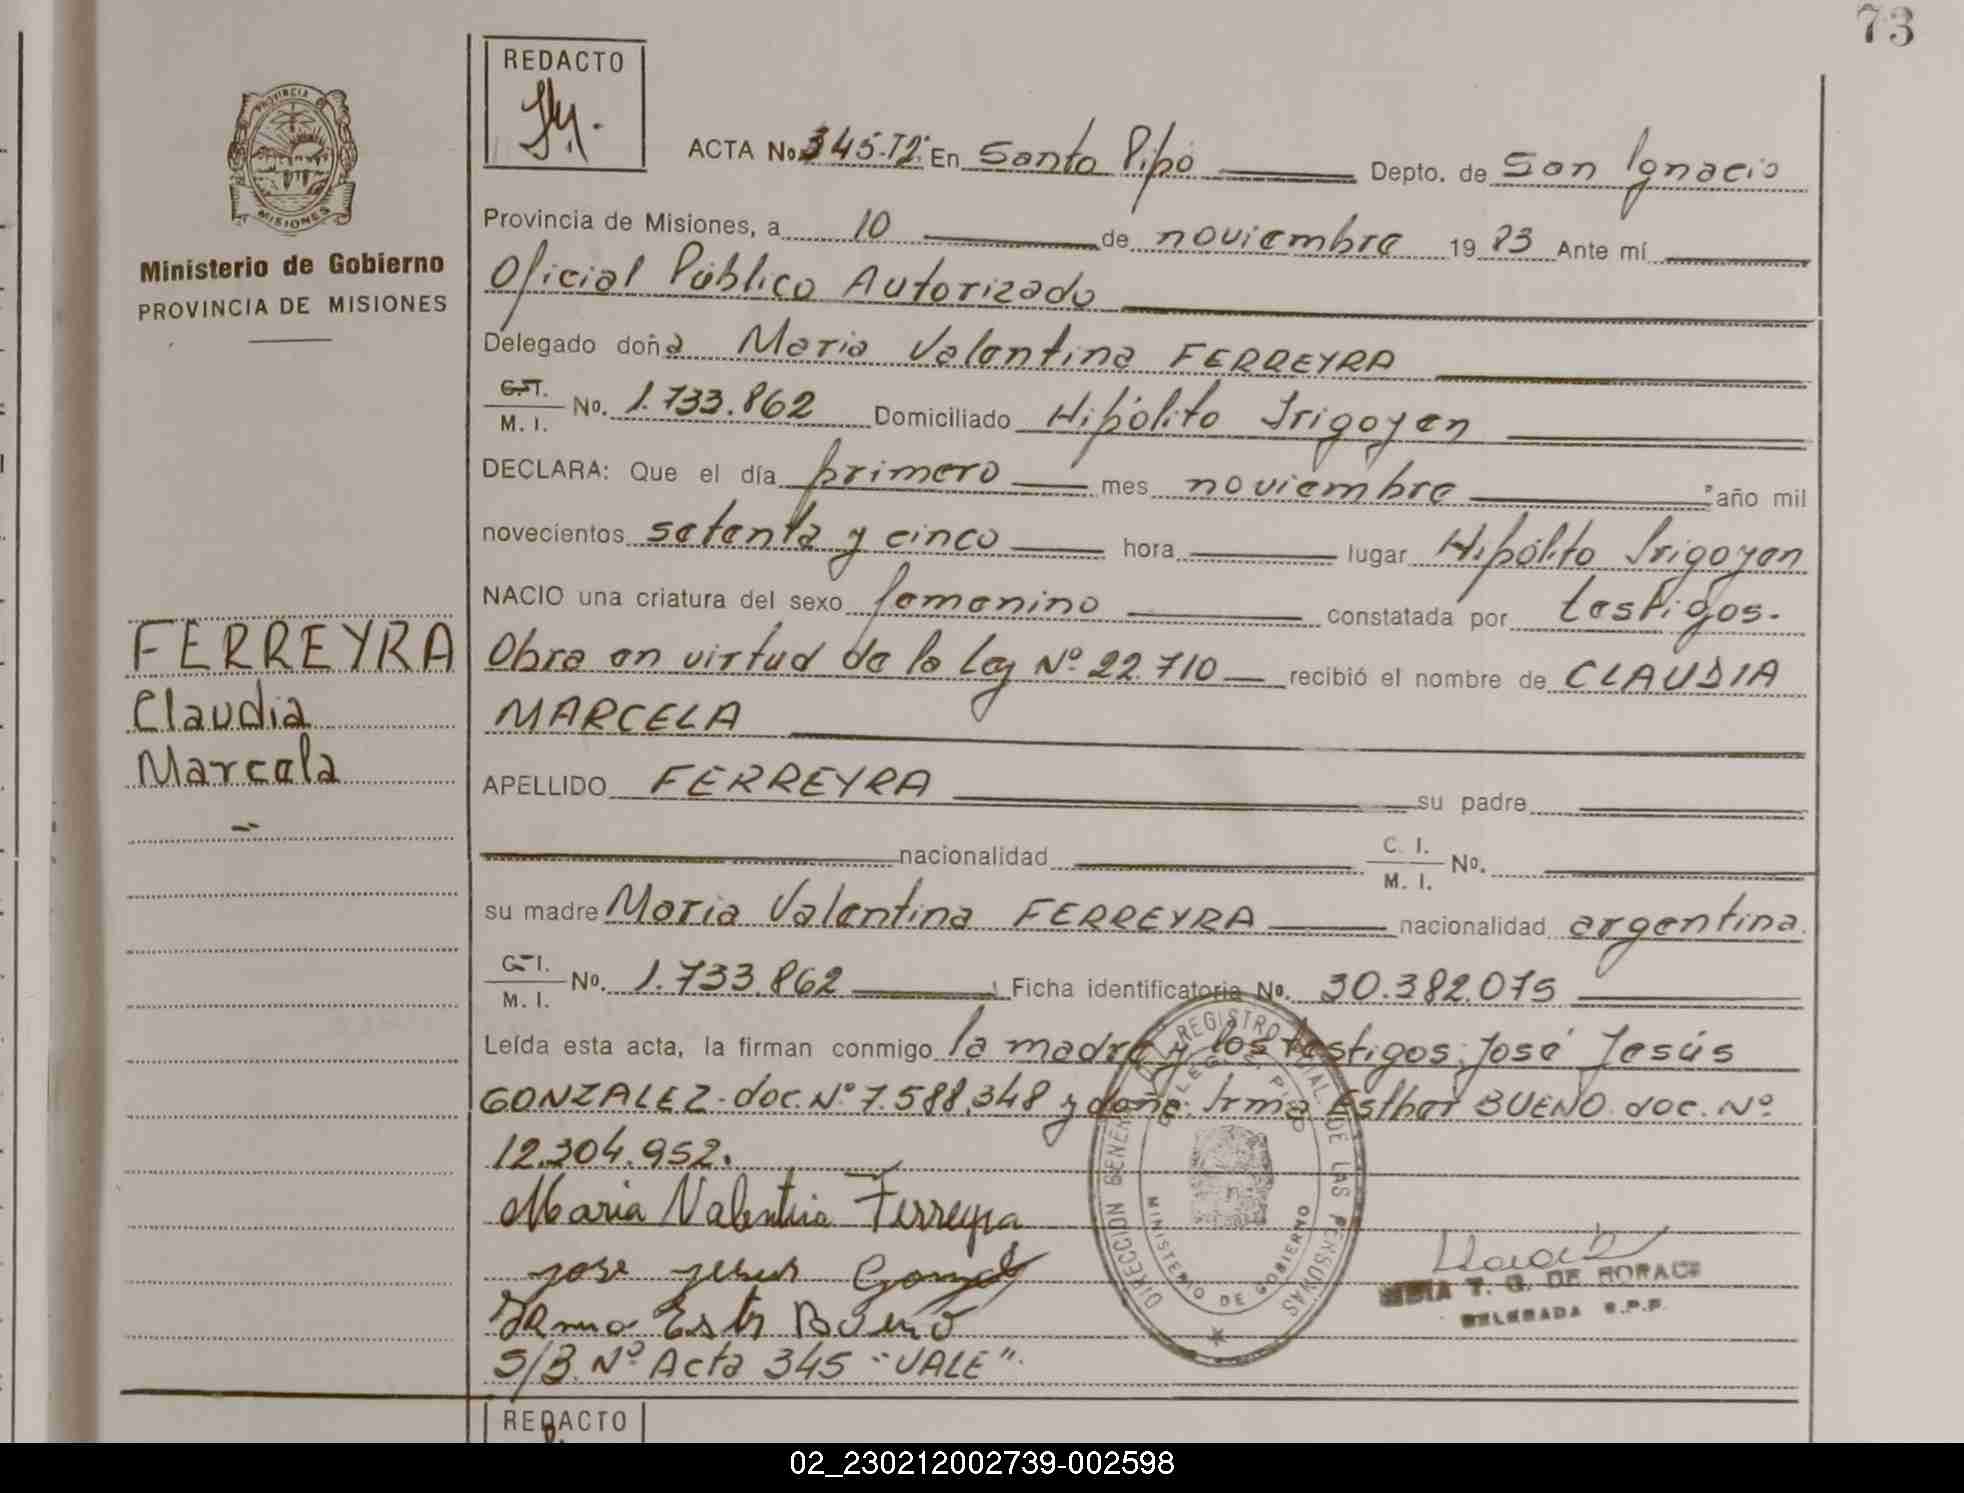 73
REDACTO
PROVINCIA DE
MISIONES
Ministerio de Gobierno
PROVINCIA DE MISIONES
ACTA No. 345-Tº2º En Santo Pipó Depto. de San Ignacio
Provincia de Misiones, a 10 de noviembre 1983 Ante mí
Oficial Público Autorizado
Delegado doña Maria Valentina FERREYRA
C. I. / M. I. No. 1.733.862 Domiciliado Hipólito Irigoyen
DECLARA: Que el día primero mes noviembre año mil
novecientos setenta y cinco hora lugar Hipólito Irigoyen
NACIO una criatura del sexo femenino constatada por testigos.
Obra en virtud de la Ley Nº 22.710 recibió el nombre de CLAUDIA
MARCELA
APELLIDO FERREYRA su padre
nacionalidad C. I. / M. I. No.
su madre Maria Valentina FERREYRA nacionalidad argentina.
C. I. / M. I. No. 1.733.862 Ficha identificatoria No. 30.382.075
Leída esta acta, la firman conmigo la madre y los testigos; José Jesús
GONZALEZ-doc. Nº 7.588.348 y doña: Irma Esther BUENO. doc. Nº
12.304.952.
Maria Valentina Ferreyra
jose jesus
Bueno
S/B. Nº Acta 345 "VALE".
FERREYRA
Claudia
Marcela
DIRECCION GENERAL DE REGISTRO DE LAS PERSONAS
MINISTERIO DE GOBIERNO
T. G. DE
DELEGADA R.P.P.
REDACTO
02_230212002739-002598